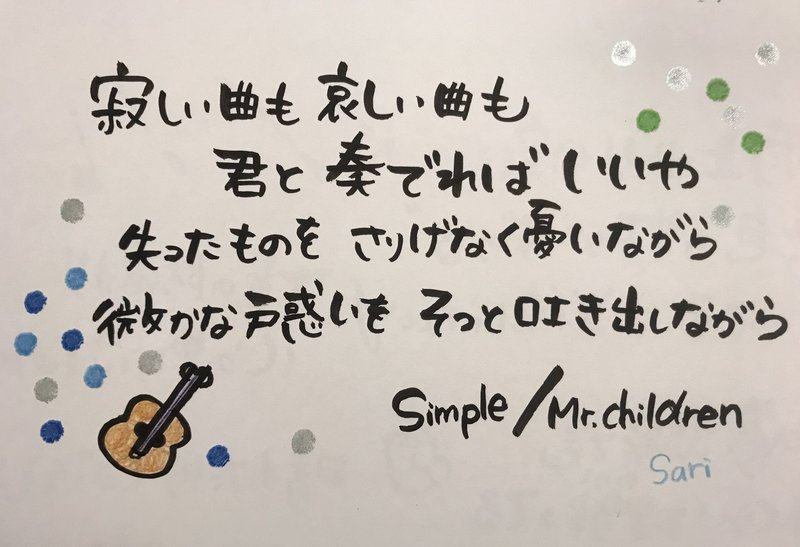 寂しい曲も 哀しい曲も
君と奏でればいいや
失ったものを さりげなく憂いながら
微かな戸惑いを そっと吐き出しながら
Simple/Mr.children
Sari